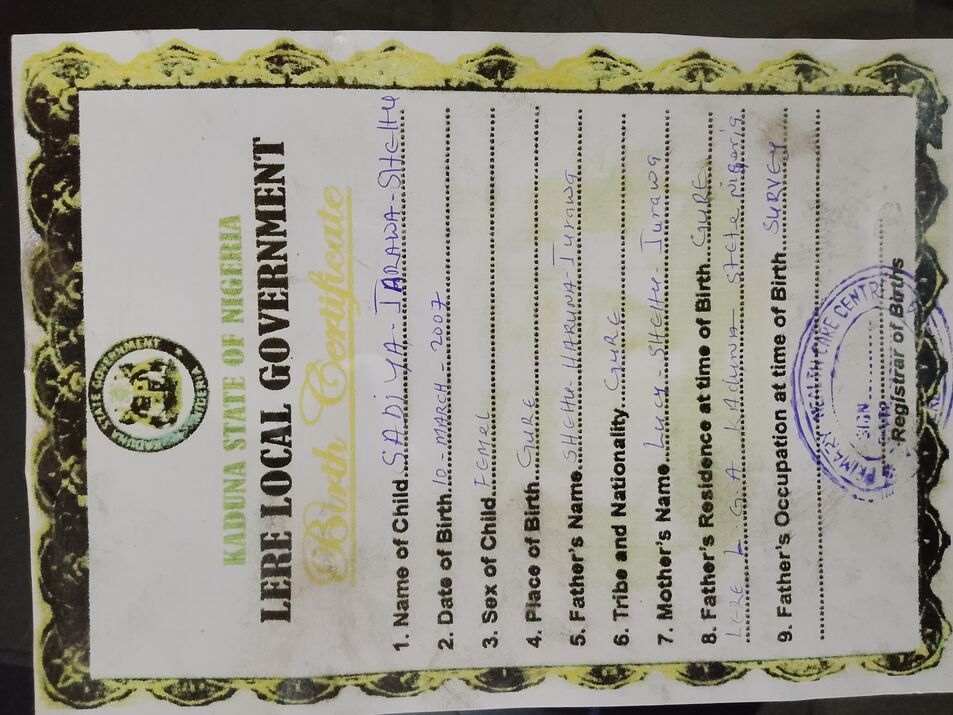 KADUNA STATE GOVERNMENT
NIGERIA
KADUNA STATE OF NIGERIA
LERE LOCAL GOVERNMENT
Birth Certificate
1. Name of Child SADIYA-JARAWA-SHEHU
2. Date of Birth 10-MARCH-2007
3. Sex of Child FEMEL
4. Place of Birth GURE
5. Father's Name SHEHU HARUNA-Jurawa
6. Tribe and Nationality GURE
7. Mother's Name LUCY-SHEHU-Jurawa
8. Father's Residence at time of Birth GURE
LERE L.G.A Kaduna state Nigeria
9. Father's Occupation at time of Birth SURVEY
PRIMARY HEALTH CARE CENTR
SIGN
Registrar of Births